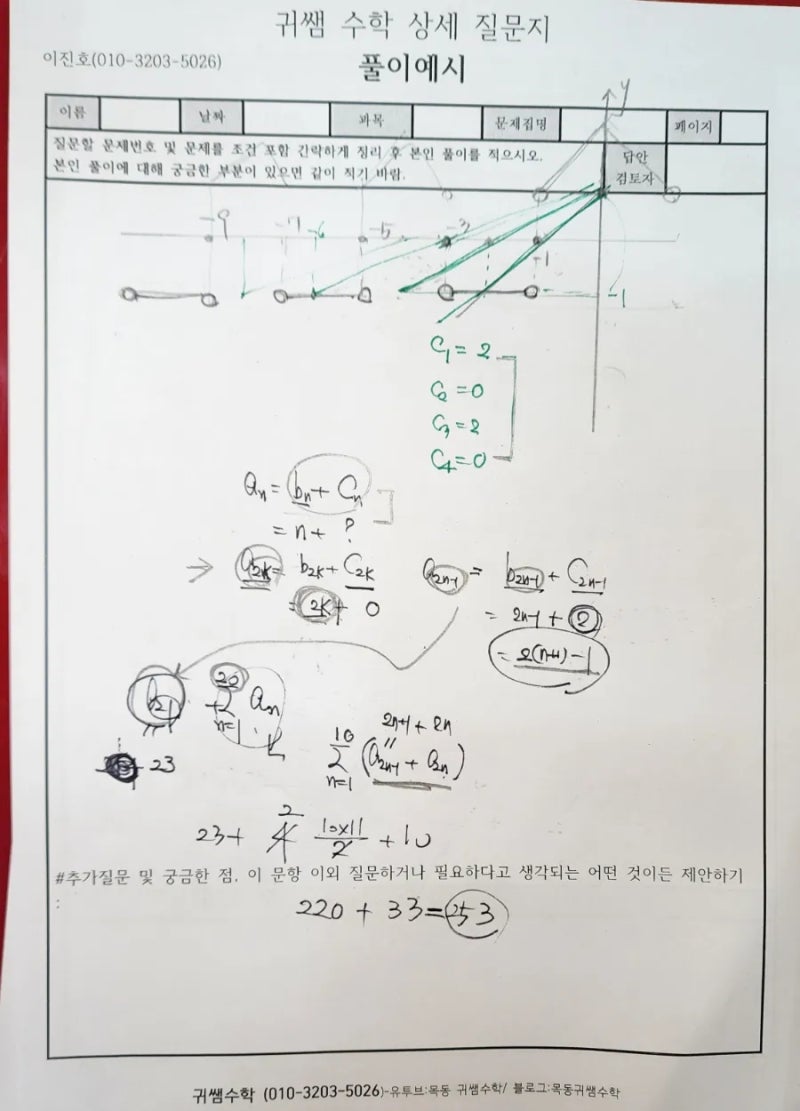 귀쌤 수학 상세 질문지
이진호(010-3203-5026)
풀이예시
이름 날짜 과목 문제집명 페이지
질문할 문제번호 및 문제를 조건 포함 간략하게 정리 후 본인 풀이를 적으시오.
본인 풀이에 대해 궁금한 부분이 있으면 같이 적기 바람.
답안
검토자
y
-9 -7 -6 -5 -3 -1
-1
C₁ = 2
C₂ = 0
C₃ = 2
C₄ = 0
aₙ = bₙ + Cₙ
= n + ?
→ a₂ₖ = b₂ₖ + C₂ₖ
= 2k + 0
a₂ₙ₋₁ = b₂ₙ₋₁ + C₂ₙ₋₁
= 2n-1 + 2
= 2(n+1) - 1
+ Σ aₙ
20
n=1
23
2n+1 + 2n
10
Σ (a₂ₙ₋₁ + a₂ₙ)
n=1
23 + 2 10×11/2 + 10
#추가질문 및 궁금한 점, 이 문항 이외 질문하거나 필요하다고 생각되는 어떤 것이든 제안하기
:
220 + 33 = 253
귀쌤수학 (010-3203-5026)-유투브:목동 귀쌤수학/ 블로그:목동귀쌤수학